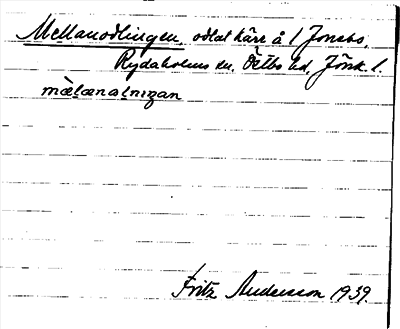 Mellanodlingen, odlat kärr å 1 Jonsbo,
Rydaholms sn. Östbo hd. Jönk. l.
mèlanalnigan
Fritz Andersson 1939.